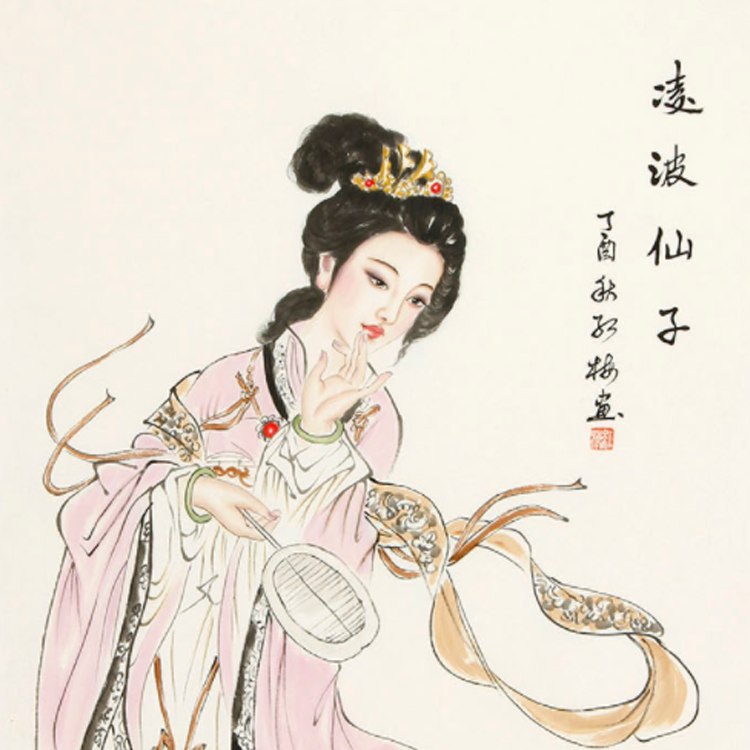 凌波仙子
丁酉秋红梅画